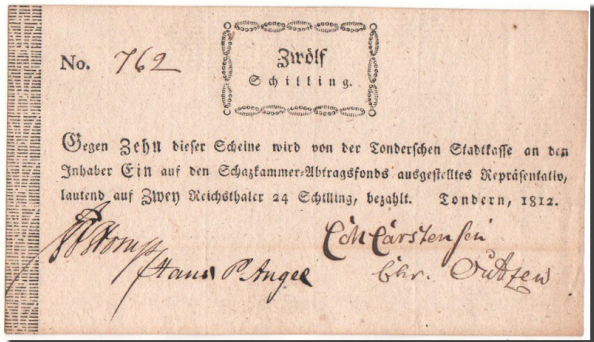 No. 762
Zwölf
Schilling.
Gegen Zehn dieser Scheine wird von der Tonderschen Stadtkasse an den
Inhaber Ein auf den Schazkammer-Abtragsfonds ausgestelltes Repräsentativ,
lautend auf Zwey Reichsthaler 24 Schilling, bezahlt. Tondern, 1812.
Carstensen
Hans P. Angel
Chr.